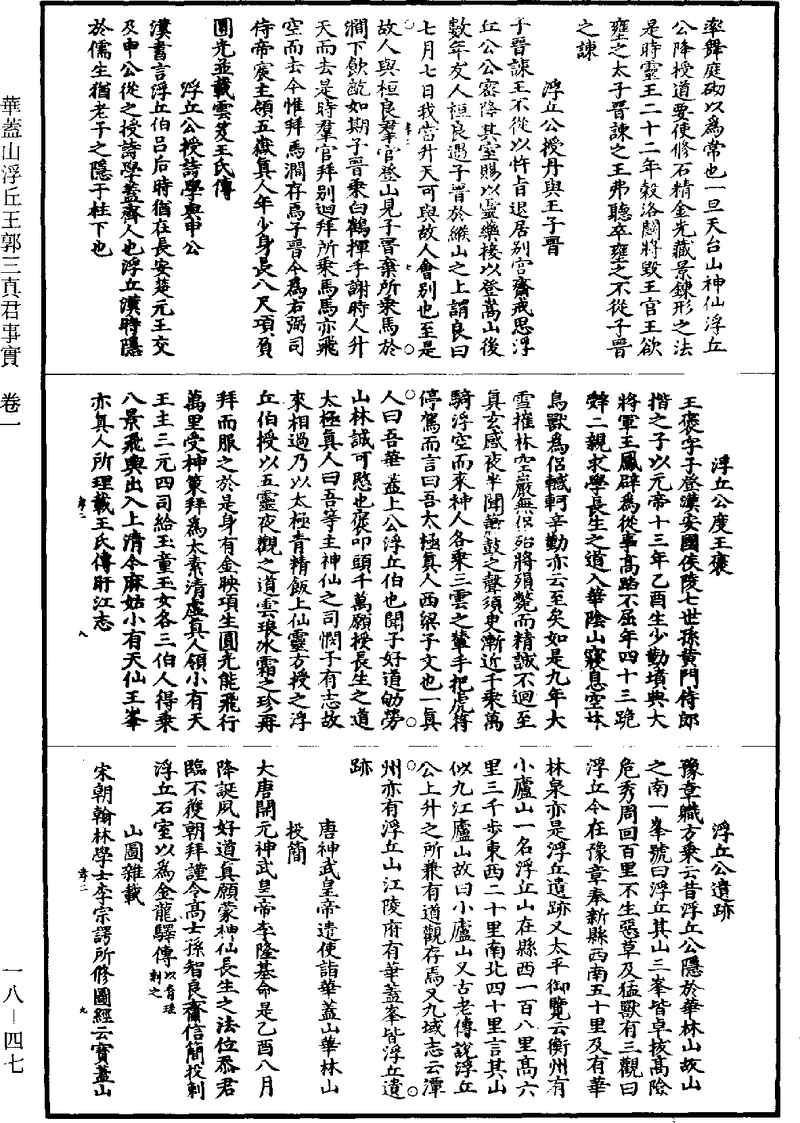 率舞庭砌以為常也一旦天台山神仙浮丘
公降授道要使修石精金光藏景鍊形之法
是時靈王二十二年穀洛鬭將毀王宮王欲
壅之太子晉諫之王弗聽卒壅之不從子晉
之諫
浮丘公授丹與王子晉
子晉諫王不從以忤旨退居別宮齋戒思浮
丘公公密降其室賜以靈藥接以登嵩山後
數年友人桓良遇子晉於緱山之上謂良曰
七月七日我當升天可與故人會別也至是
故人與桓良羣官登山見子晉棄所乘馬於
澗下飲齕如期子晉乘白鶴揮手謝時人升
天而去是時羣官拜別迴拜所乘馬馬亦飛
空而去今惟拜馬澗存焉子晉今為右弼司
侍帝宸主領五嶽真人年少身長八尺項負
圓光並載雲笈王氏傳
浮丘公授詩學與申公
漢書言浮丘伯呂后時猶在長安楚元王交
及申公從之授詩學蓋齊人也浮丘漢時隱
於儒生猶老子之隱于柱下也
浮丘公度王褒
王褒字子登漢安國侯陵七世孫黃門侍郎
楷之子以元帝十三年乙酉生少勤墳典大
將軍王鳳辟為從事高蹈不屈年四十三跪
辭二親求學長生之道入華陰山寢息空林
鳥獸為侶轗軻辛勤亦云至矣如是九年大
雪摧林空巖無侶殆將殞斃而精誠不迴至
真玄感夜半聞簫鼓之聲須臾漸近千乘萬
騎浮空而來神人各乘三雲之輦手把虎符
停駕而言曰吾太極真人西梁子文也一真
人曰吾華蓋上公浮丘伯也聞子好道劬勞
山林誠可愍也褒叩頭千萬願授長生之道
太極真人曰吾等主神仙之司憫子有志故
來相過乃以太極青精飯上仙靈方授之浮
丘伯授以五靈夜觀之道雲琅水霜之珍再
拜而服之於是身有金映項生圓光能飛行
萬里受神策拜為太素清虛真人領小有天
王主三元四司給玉童玉女各三伯人得乘
八景飛輿出入上清今麻姑小有天仙王峯
亦真人所理載王氏傳旴江志
浮丘公遺跡
豫章職方乘云昔浮丘公隱於華林山故山
之南一峯號曰浮丘其山三峯皆卓拔高險
危秀周回百里不生惡草及猛獸有三觀曰
浮丘今在豫章奉新縣西南五十里及有華
林泉亦是浮丘遺跡又太平御覽云衡州有
小廬山一名浮丘山在縣西一百八里高六
里三千步東西二十里南北四十里言其山
似九江廬山故曰小廬山又古老傳說浮丘
公上升之所兼有道觀存焉又九域志云潭
州亦有浮丘山江陵府有華蓋峯皆浮丘遺
跡
唐神武皇帝遣使詣華蓋山華林山
投簡
大唐開元神武皇帝李隆基命是乙酉八月
降誕夙好道真願蒙神仙長生之法位忝君
臨不獲朝拜謹令高士孫智良齎信簡投刺
浮丘石室以為金龍驛傳以青珪刺之
山圖雜載
宋朝翰林學士李宗諤所修圖經云寶蓋山
華蓋山浮丘王郭三真君事實 卷一
一八—四七